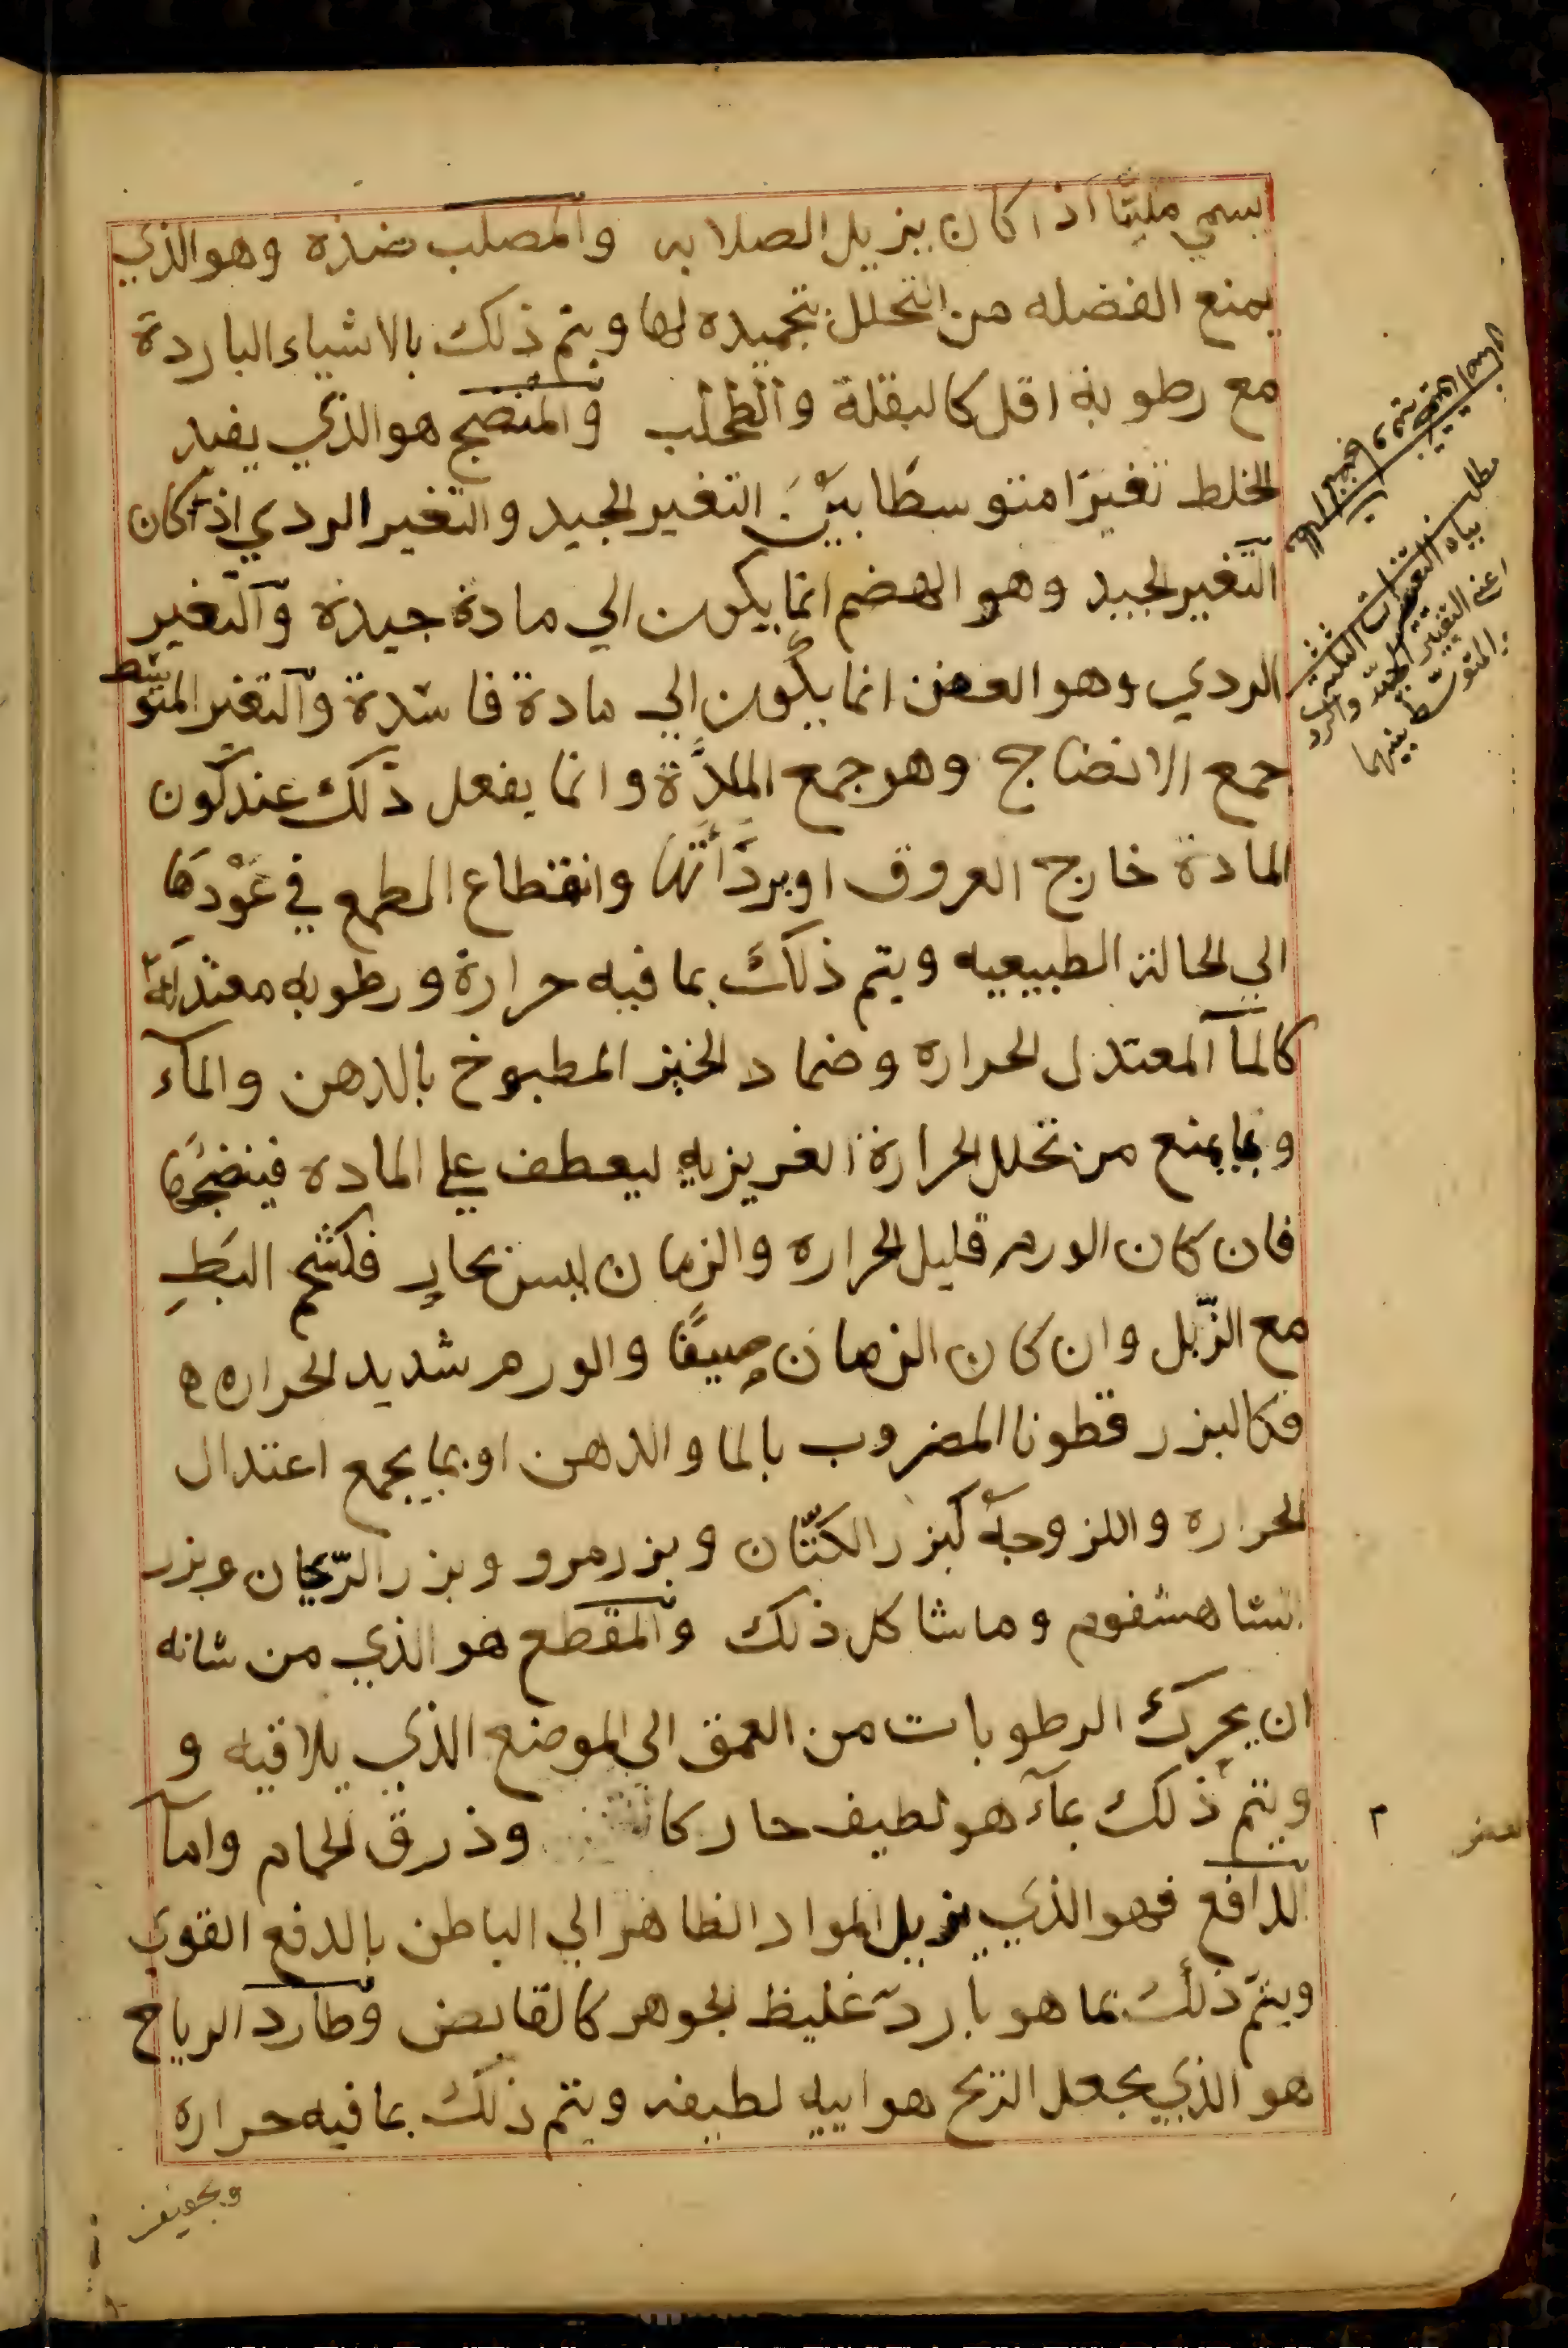 يسمي مليّنًا اذا كان يزيل الصلابه والمصلب ضده وهو الذي
يمنع الفضله من التحلل بتجميده لها ويتم ذلك بالاشياء الباردة
مع رطوبة اقل كالبقلة والطحلب والمنضج هو الذي يفيد
الخلط تغيرًا متوسطًا بيْنَ التغير الجيد والتغير الردي اذ كان
التغير الجيد وهو الهضم انما يكون الي مادة جيدة والتغير
الردي وهو العفن انما يكون الي مادة فاسدة والتغير المتوسط
جمع الانضاج وهو جمع المِدَّة وانما يفعل ذلك عند كون
المادة خارج العروق او برداءتها وانقطاع المطمع في عَوْدها
الي الحالة الطبيعيه ويتم ذلك بما فيه حرارة ورطوبه معتدلة
كالمآ المعتدل الحراره وضماد الخبز المطبوخ بالدهن والمآء
وبما يمنع من تحلل الحرارة الغريزيه ليعطف علي الماده فينضجها
فان كان الورم قليل الحراره والزمان ليس بحار فكشحم البَطِ
مع الزّبل وان كان الزمان صيفًا والورم شديد الحراره
فكالبزر قطونا المضروب بالما والدهن او بما يجمع اعتدال
الحراره واللزوجة كبزر الكتّان وبزر مرو وبزر الرّيحان وبزر
الشاهسفوم وما شاكل ذلك والمقطع هو الذي من شانه
ان يحرك الرطوبات من العمق الى الموضع الذي يلاقيه و
ويتم ذلك بمآء هو لطيف حار وذرق الحمام وامآ
الدافع فهو الذي يزيل المواد الظاهر الي الباطن بالدفع القوي
ويتم ذلك بما هو بارد غليظ الجوهر كالقابض وطارد الرياح
هو الذي يجعل الريح هواييه لطيفه ويتم ذلك بما فيه حراره
وتجفيف
مطلب
بيان التغيرات الثلث
اعني التغيير الجيد والردي
والمتوسط بينهما